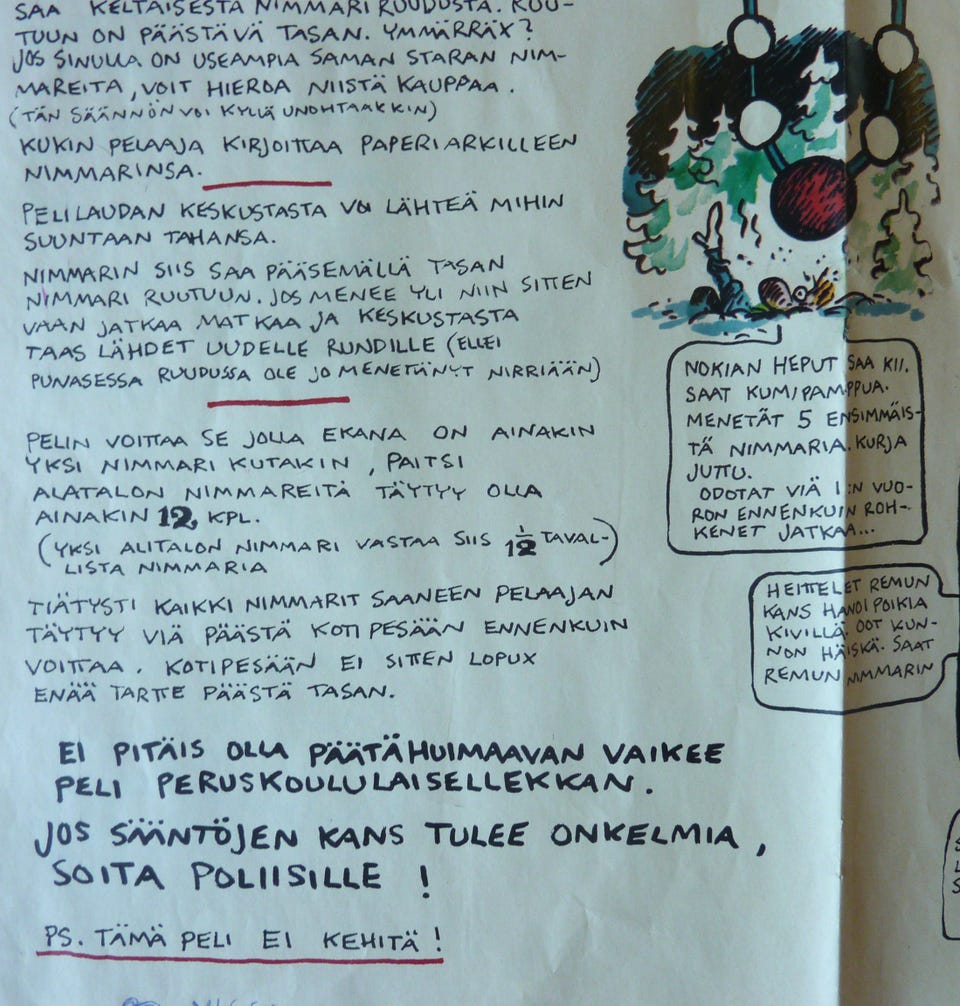 SAA KELTAISESTA NIMMARI RUUDUSTA. RUU-
TUUN ON PÄÄSTÄVÄ TASAN. YMMÄRRÄX?
JOS SINULLA ON USEAMPIA SAMAN STARAN NIM-
MAREITA, VOIT HIEROA NIISTÄ KAUPPAA.
(TÄN SÄÄNNÖN VOI KYLLÄ UNOHTAAKKIN)
KUKIN PELAAJA KIRJOITTAA PAPERIARKILLEEN
NIMMARINSA.
PELILAUDAN KESKUSTASTA VOI LÄHTEÄ MIHIN
SUUNTAAN TAHANSA.
NIMMARIN SIIS SAA PÄÄSEMÄLLÄ TASAN
NIMMARI RUUTUUN. JOS MENEE YLI NIIN SITTEN
VAAN JATKAA MATKAA JA KESKUSTASTA
TAAS LÄHDET UUDELLE RUNDILLE (ELLEI
PUNASESSA RUUDUSSA OLE JO MENETTÄNYT NIRRIÄÄN)
PELIN VOITTAA SE JOLLA EKANA ON AINAKIN
YKSI NIMMARI KUTAKIN, PAITSI
ALATALON NIMMAREITA TÄYTYY OLLA
AINAKIN 12, KPL.
(YKSI ALITALON NIMMARI VASTAA SIIS 1/12 TAVAL-)
LISTA NIMMARIA
TIÄTYSTI KAIKKI NIMMARIT SAANEEN PELAAJAN
TÄYTYY VIÄ PÄÄSTÄ KOTIPESÄÄN ENNENKUIN
VOITTAA. KOTIPESÄÄN EI SITTEN LOPUX
ENÄÄ TARTTE PÄÄSTÄ TASAN.
EI PITÄIS OLLA PÄÄTÄHUIMAAVAN VAIKEE
PELI PERUSKOULULAISELLEKKAN.
JOS SÄÄNTÖJEN KANS TULEE ONKELMIA,
SOITA POLIISILLE !
PS. TÄMÄ PELI EI KEHITÄ!
NOKIAN HEPUT SAA KII.
SAAT KUMIPAMPPUA.
MENETÄT 5 ENSIMMÄIS-
TÄ NIMMARIA. KURJA
JUTTU.
ODOTAT VIÄ 1:N VUO-
RON ENNENKUIN ROH-
KENET JATKAA...
HEITTELET REMUN
KANS HANOI POIKIA
KIVILLÄ. OOT KUN-
NON HÄISKÄ. SAAT
REMUN NIMMARIN